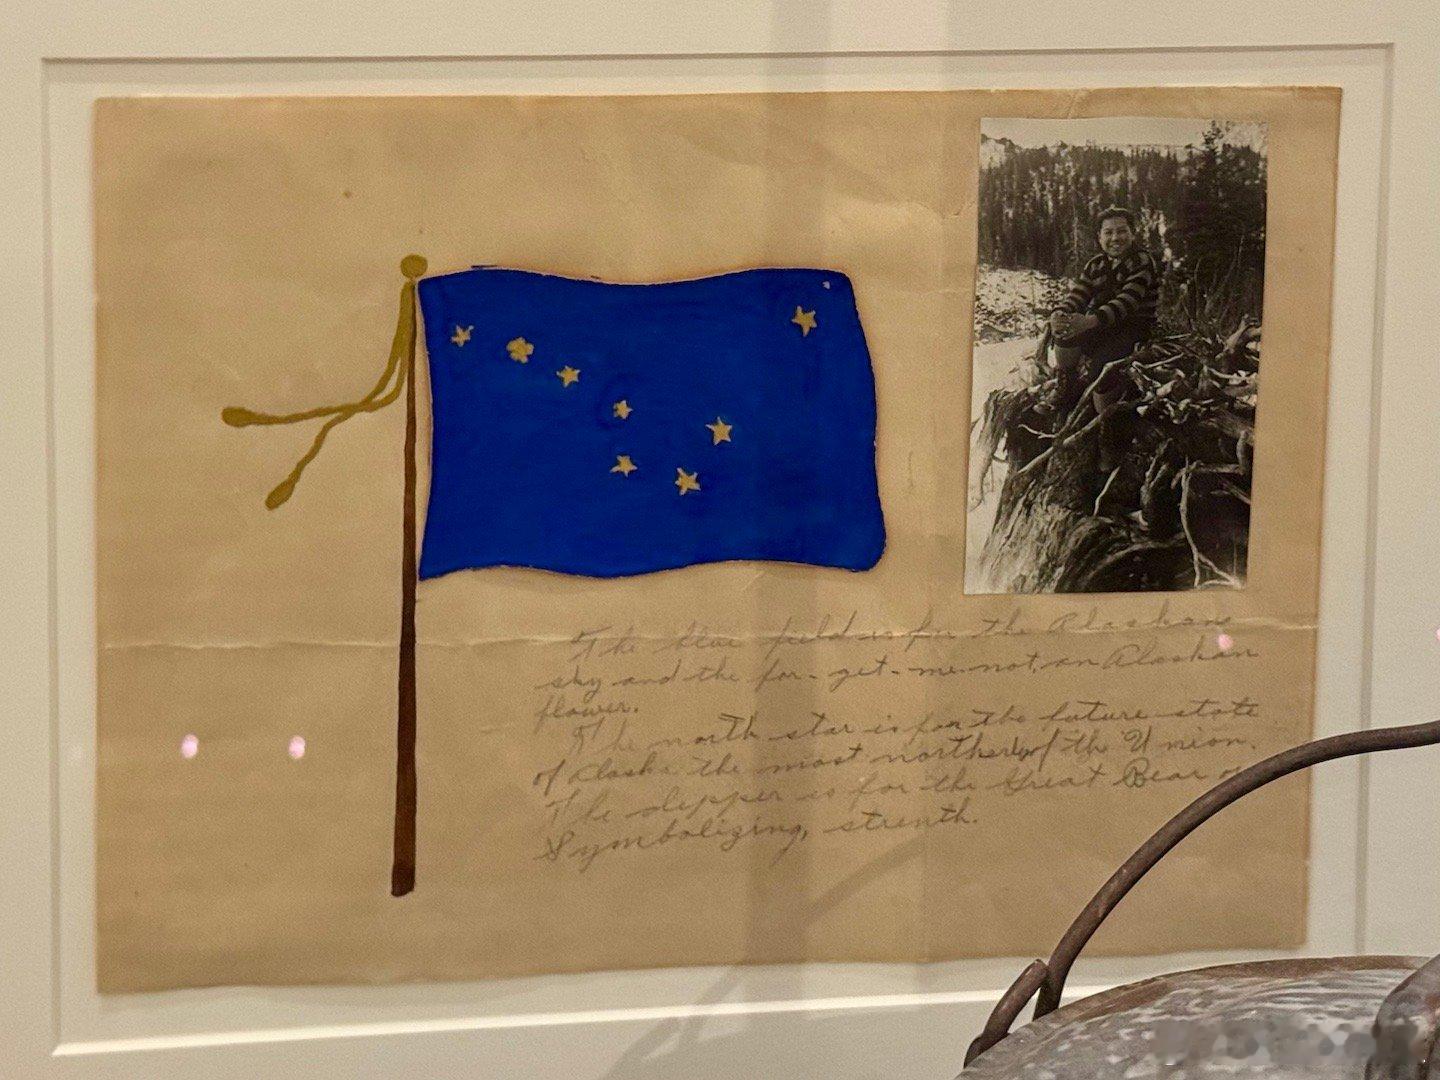 The blue field is for the Alaskan
sky and the for-get-me-not, an Alaskan
flower.
The north star is for the future state
of Alaska the most northerly of the Union.
The dipper is for the Great Bear
Symbolizing, strenth.